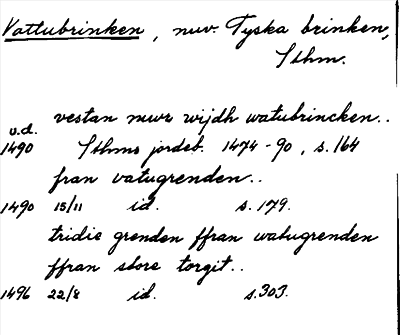 Vattubrinken, nuv. Tyska brinken,
Sthm.
vestan mwr wijdh watubrincken..
u.d.
1490 Sthms jordeb. 1474-90, s.164
fran vatugrenden..
1490 15/11 id. s.179.
tridie grenden ffran watugrenden
ffran store torgit..
1496 22/8 id. s.303.